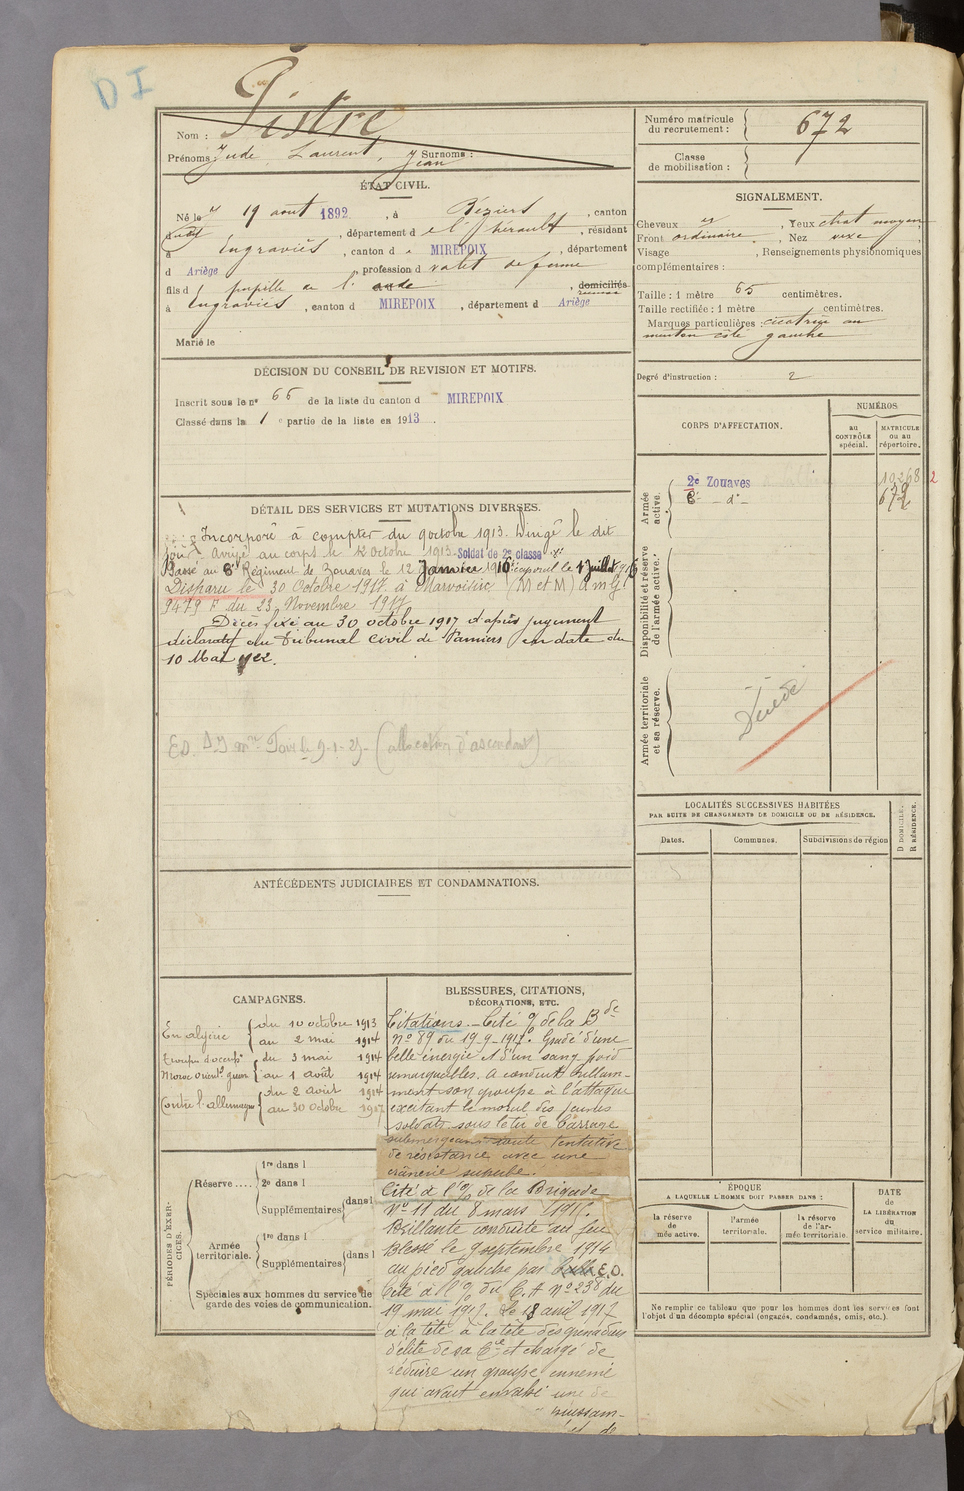 DI
Nom : Pistre
Prénoms Jude, Laurent, Jean Surnoms :
ÉTAT CIVIL.
Né le 19 août 1892, à Béziers, canton
, département d e l'Hérault, résidant
à Engraviès, canton d MIREPOIX, département
d Ariège, profession d valet de ferme
fils d pupille de l'aude, domiciliés
à Engraviès, canton d MIREPOIX, département d Ariège
Marié le
DÉCISION DU CONSEIL DE REVISION ET MOTIFS.
Inscrit sous le n° 66 de la liste du canton d MIREPOIX
Classé dans la 1e partie de la liste en 1913.
DÉTAIL DES SERVICES ET MUTATIONS DIVERSES.
Incorporé à compter du 9 octobre 1913. Dirigé le dit
jour. Arrivé au corps le octobre 1913. Soldat de 2e classe
Passé au 8e Régiment de Zouaves le 12 Janvier 1916. Caporal le 1 Juillet 1916
Disparu le 30 Octobre 1917 à (M et M)
9479 F du 23 Novembre 1917
Décès fixé au 30 octobre 1917 d'après jugement
déclaratif du Tribunal Civil de Pamiers en date du
10 Mai 1922.
(allocation d'ascendant)
ANTÉCÉDENTS JUDICIAIRES ET CONDAMNATIONS.
CAMPAGNES.
En algérie { du 10 octobre 1913
au 2 mai 1914
du 3 mai 1914
Maroc orient. guerre au 1 août 1914
Contre l'allemagne { du 2 août 1914
au 30 octobre 1917
BLESSURES, CITATIONS,
DÉCORATIONS, ETC.
Citations. - Cité à l'o/ de la Bde
n° 89 du 19-9-1917. Gradé d'une
belle énergie et d'un sang froid
remarquables. A conduit brillam-
ment son groupe à l'attaque
excitant le moral des jeunes
soldats sous le tir de barrage
submergeant toute tentative
de résistance avec une
crânerie superbe.
Cité à l'o/ de la Brigade
N° 11 du 8 mars 1917.
Brillante conduite au feu
Blessé le 9 septembre 1914
au pied gauche par balle E.O.
Cité à l'o/ du C.A n° 238 du
19 mai 1917. Le 18 avril 1917
à la tête à la tête des grenadiers
d'élite de sa Cie et chargé de
réduire un groupe ennemi
qui avait envahi une de
puissam-
PÉRIODES D'EXERCICES.
Réserve .... { 1re dans l
2e dans l
Supplémentaires { dans l
Armée territoriale. { 1re dans l
Supplémentaires { dans l
Spéciales aux hommes du service de
garde des voies de communication.
Numéro matricule
du recrutement : } 672
Classe
de mobilisation : }
SIGNALEMENT.
Cheveux , Yeux chat moyen
Front ordinaire, Nez vexe,
Visage , Renseignements physionomiques
complémentaires :
Taille : 1 mètre 65 centimètres.
Taille rectifiée : 1 mètre centimètres.
Marques particulières : cicatrice au
menton côté gauche
Degré d'instruction : 2
CORPS D'AFFECTATION.
NUMÉROS
au
CONTRÔLE
spécial.
MATRICULE
ou au
répertoire.
Armée
active.
2e Zouaves 10268 2
8e - d° - 672
Disponibilité et réserve
de l'armée active.
Armée territoriale
et sa réserve.
LOCALITÉS SUCCESSIVES HABITÉES
PAR SUITE DE CHANGEMENTS DE DOMICILE OU DE RÉSIDENCE.
Dates.
Communes.
Subdivisions de région
D DOMICILE.
R RÉSIDENCE.
ÉPOQUE
A LAQUELLE L'HOMME DOIT PASSER DANS :
la réserve
de
l'armée active.
l'armée
territoriale.
la réserve
de l'ar-
mée territoriale.
DATE
de
LA LIBÉRATION
du
service militaire.
Ne remplir ce tableau que pour les hommes dont les services font
l'objet d'un décompte spécial (engagés, condamnés, omis, etc.).